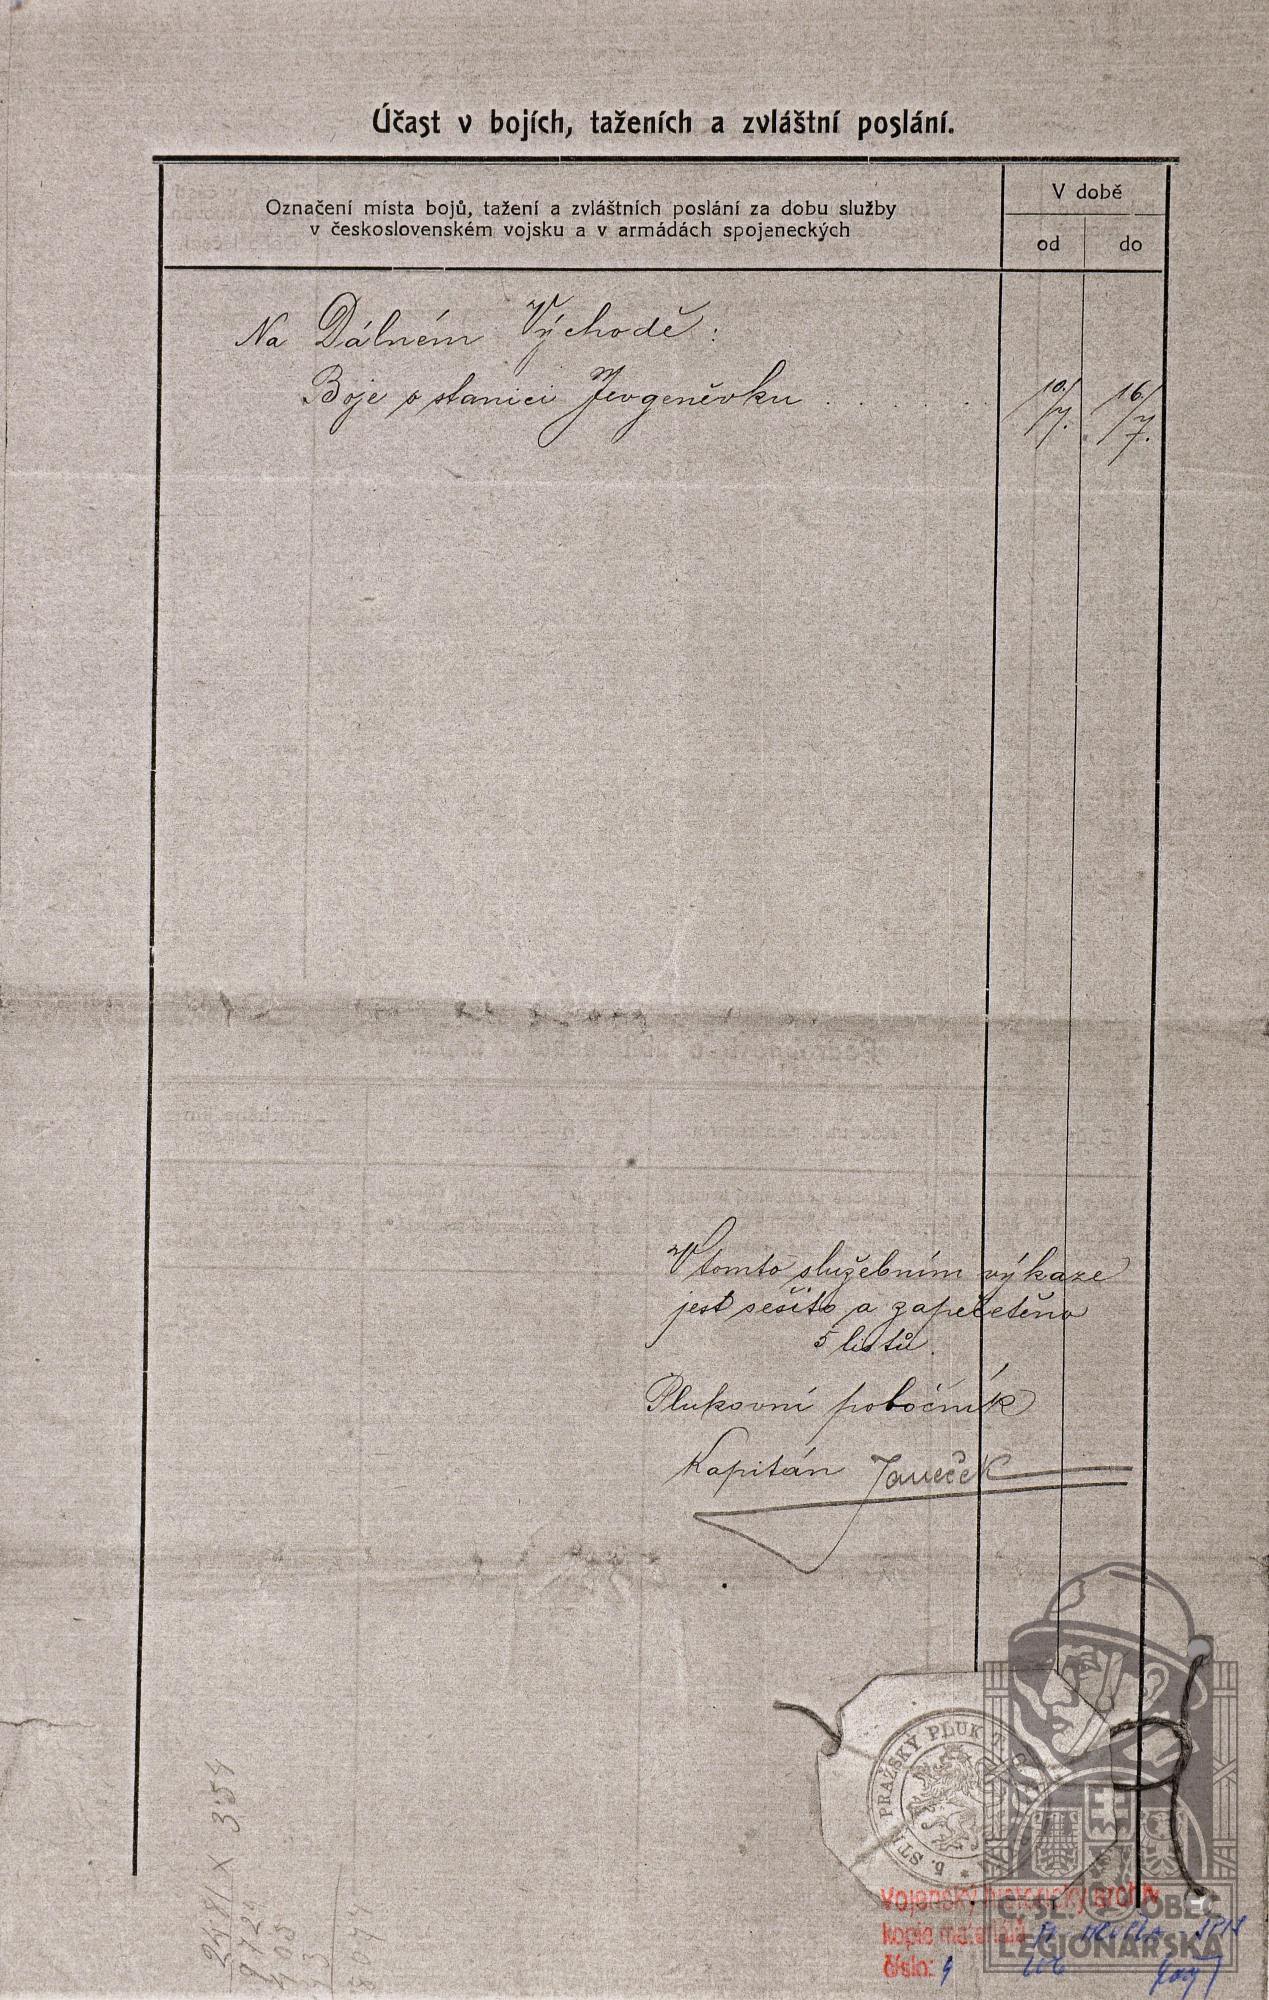 Účast v bojích, taženích a zvláštní poslání.
Označení místa bojů, tažení a zvláštních poslání za dobu služby
v československém vojsku a v armádách spojeneckých
V době
od
do
Na Dálném Východě:
Boje o stanici Jevgeněvku . . . . . . 10./7. 16./7.
V tomto služebním výkaze
jest sešito a zapečetěno
5 listů.
Plukovní pobočník
Kapitán Janeček
5. STŘ. PRAŽSKÝ PLUK T. G.
Vojenský historický archiv
kopie materiálů
číslo: 9
Č. SL. OBEC
LEGIONÁŘSKÁ
2481 X 354